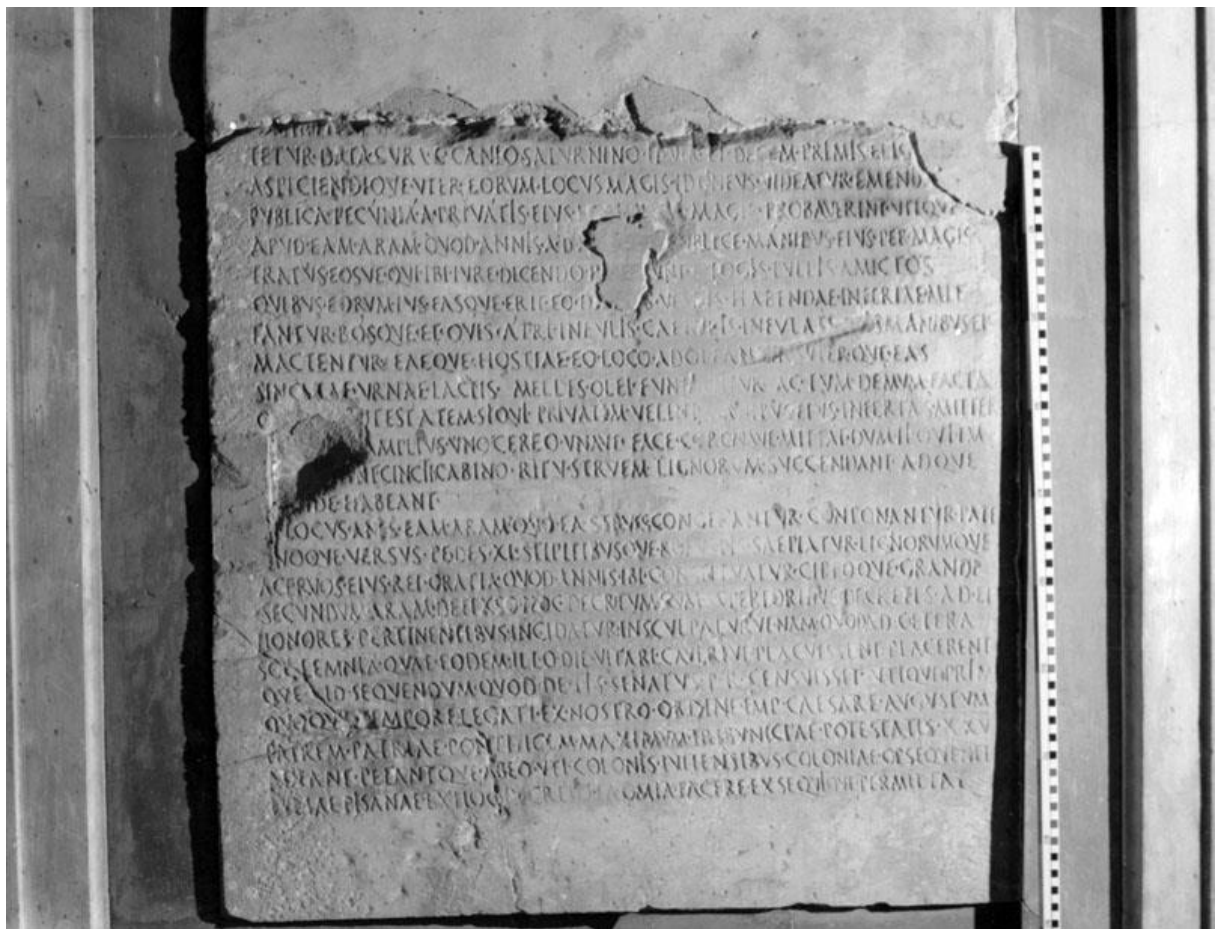 TETVR·DATA·CVRA·C·CANIO·SATVRNINO·IIVIR·ET·DECEM·PRIMIS·ELIG
ASPICIENDIQVE·VTER·EORVM·LOCVS·MAGIS·IDONEVS·VIDEATVR·EMEND
PVBLICA·PECVNIA·A·PRIVATIS·EIVS MAGIS·PROBAVERINT·VTIQVE
APVD·EAM·ARAM·QVOD·ANNIS·A·D VBLICE·MANIBVS·EIVS·PER·MAGIS
TRATVS·EOSVE·QVI·IBI·IVRE·DICENDO·P VNT·TOGIS·PVLLIS·AMICTOS
QVIBVS·EORVM·IVS·FASQVE·ERIT·EO·D VESTIS·HABENDAE·INFERIAE·MIT
TANTVR·BOSQVE·ET·OVIS·ATRI·INFVLIS·CAERVLIS·INFVLATI MANIBVS·EI
MACTENTVR·EAEQVE·HOSTIAE·EO·LOCO·ADOLEANTVR·SVPERQVE·EAS
SINGVLAE·VRNAE·LACTIS·MELLIS·OLEI·FVN VR·AC·TVM·DEMVM·FACTA
TESTATEM·SI·QVI·PRIVATIM·VELINT BVS·EIVS·INFERIAS·MITTER
AMPLIVS·VNO·CEREO·VNAVE·FACE·CORONAVE·MITTAT·DVM·II·QVI·IM
NT·CINCTI·GABINO·RITV·STRVEM·LIGNORVM·SVCCENDANT·ADQVE
DE·HABEANT·
LOCVS·ANTE·EAM·ARAM·QVO·EA·STRVES·CONGERANTVR·CONPONANTVR·PATE
QVOQVE·VERSVS·PEDES·XL·STIPITIBVSQVE·RO SAEPIATVR·LIGNORVMQVE
ACERVOS·EIVS·REI·GRATIA·QVOD·ANNIS·IBI·CON TVATVR·CIPPOQVE·GRANDI
SECVNDVM·ARAM·DEFIXSO·HOC·DECRETVM·CVM·SVPERIORIBVS·DECRETIS·AD·EI
HONORES·PERTINENTIBVS·INCIDATVR·INSCVLPATVRVE·NAM·QVOD·AD·CETERA
SOLLEMNIA·QVAE·EODEM·ILLO·DIE·VITARI·CAVERIVE·PLACVISSENT·PLACERENT
QVE·ID·SEQVENDVM·QVOD·DE·IIS·SENATVS·P·R·CENSVISSET·VTIQVE·PRIM
QVOQVE·TEMPORE·LEGATI·EX·NOSTRO·ORDINE·IMP·CAESARE·AVGVSTVM
PATREM·PATRIAE·PONTIFICEM·MAXIMVM·TRIBVNICIAE·POTESTATIS·XXV
ADEANT·PETANTQVE·AB·EO·VTI·COLONIS·IVLIENSIBVS·COLONIAE·OPSEQVENTI
IVLIAE·PISANAE·EX·HOC·DECRETO·EA·OMNIA·FACERE·EXSEQVIQVE·PERMITTAT